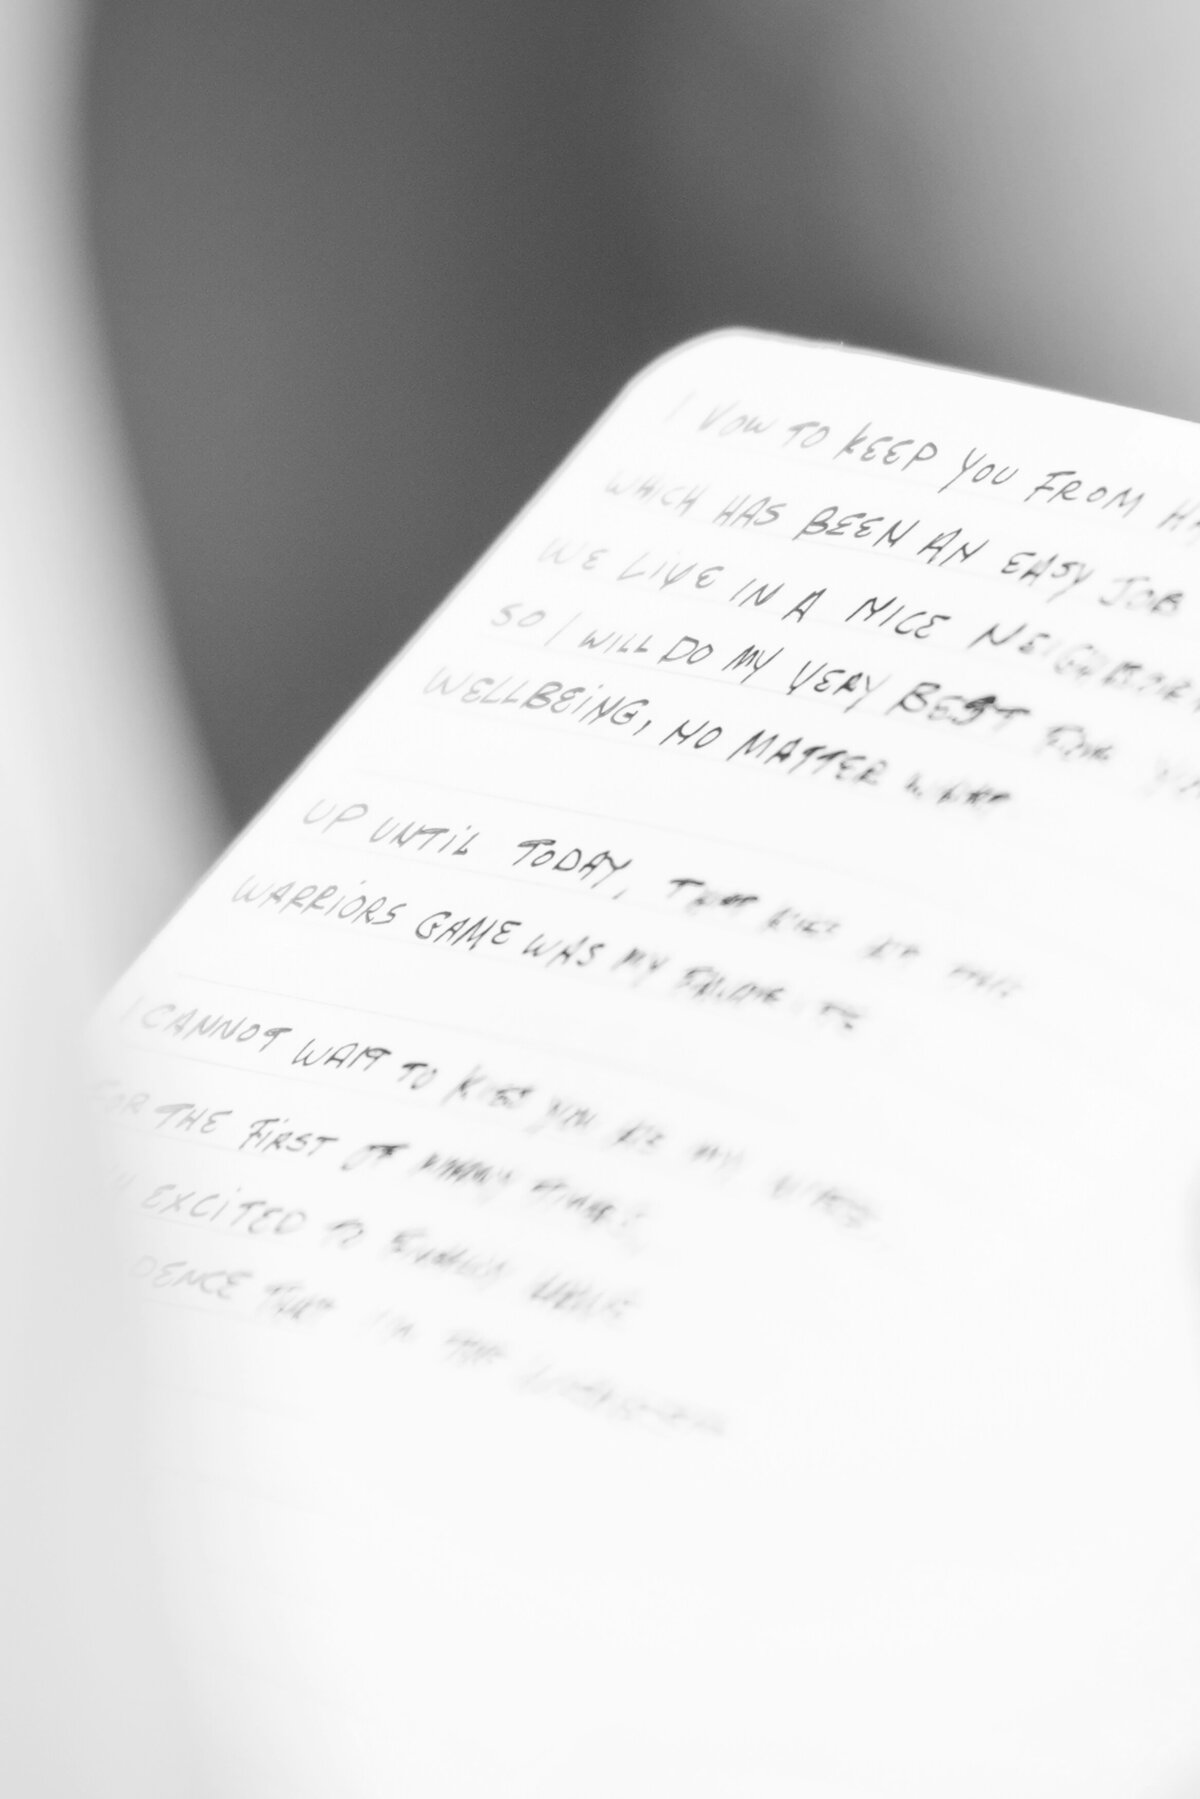 I VOW TO KEEP YOU FROM
WHICH HAS BEEN AN EASY JOB
WE LIVE IN A NICE
SO I WILL DO MY VERY BEST FOR
WELLBEING, NO MATTER WHAT
UP UNTIL TODAY, THAT KISS AT THE
WARRIORS GAME WAS MY FAVORITE
I CANNOT WAIT TO KISS YOU AS MY
FOR THE FIRST OF MANY TIMES
EXCITED TO FINALLY HAVE
THAT I'M THE